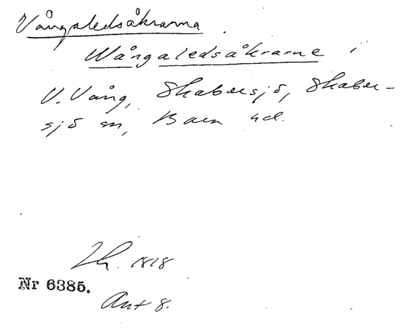 Vångaledsåkrarna.
Wångaledsåkrarne i
V. Vång, Skabersjö, Skaber-
sjö sn, Bara hd.
Lh. 1818
Nr 6385.
Ant 8.